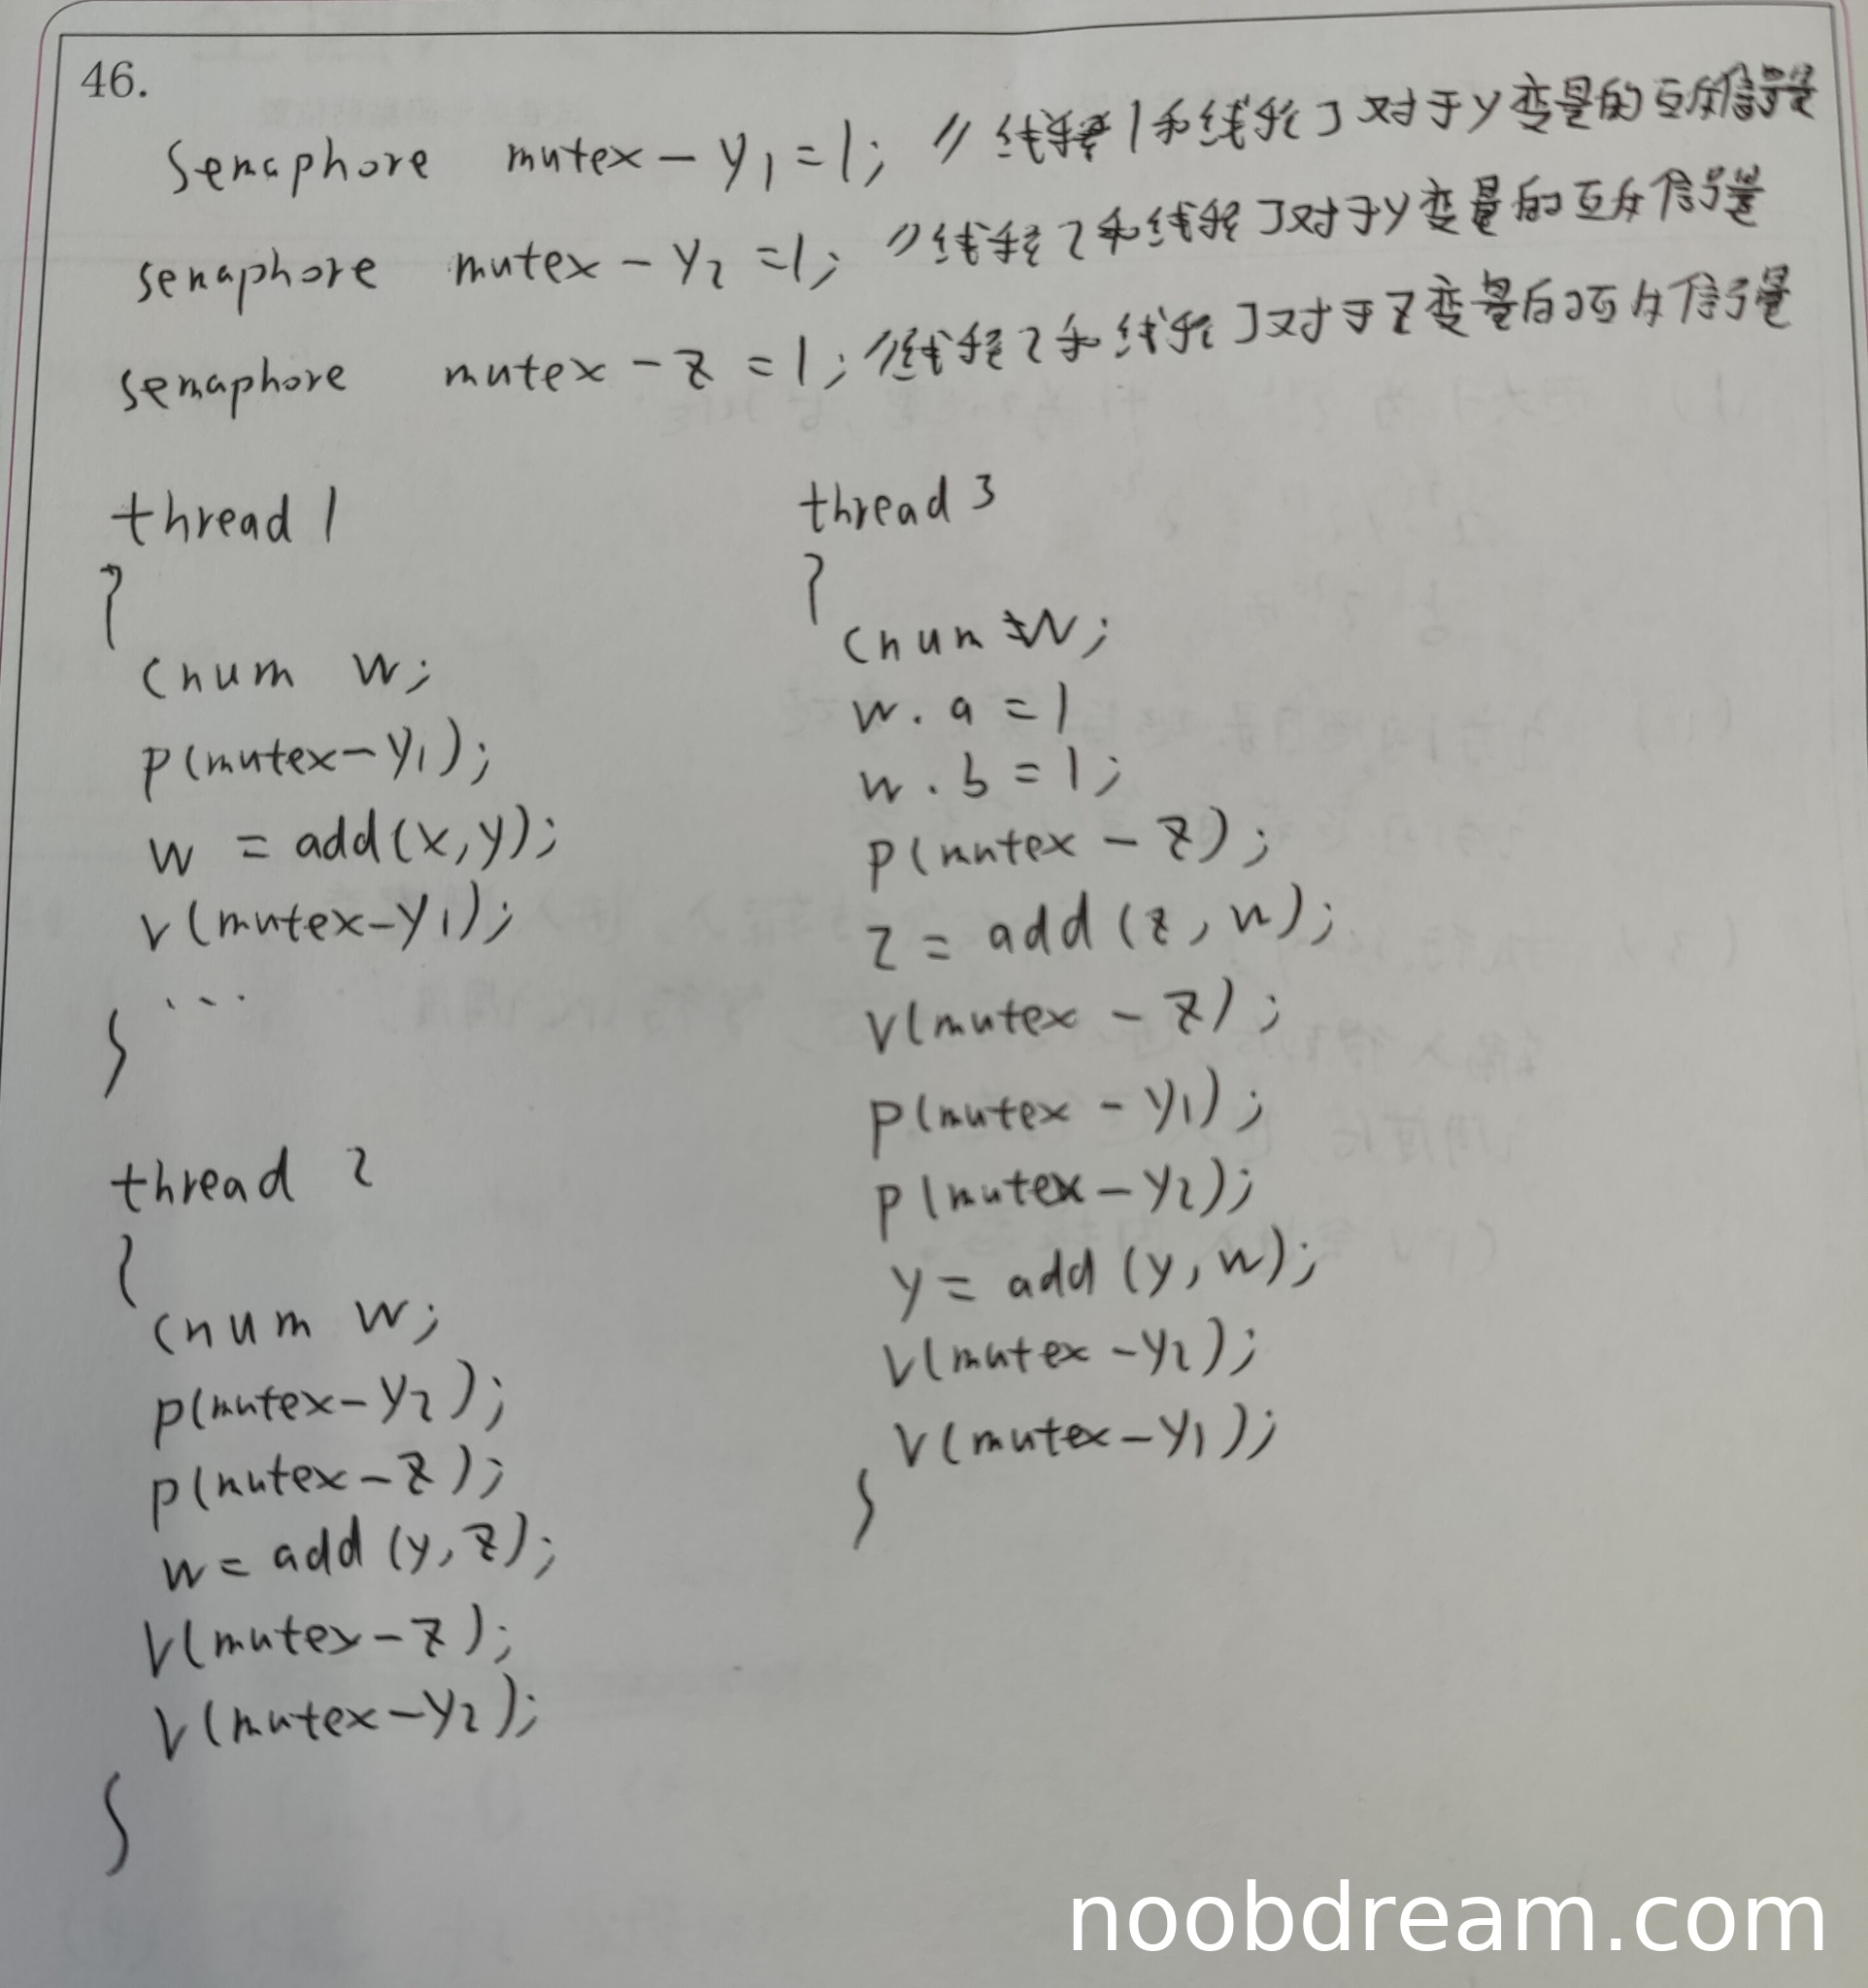 46.
Semaphore mutex-y1=1; //线程1和线程3对于y变量的互斥信号量
semaphore mutex-y2=1; //线程2和线程3对于y变量的互斥信号量
semaphore mutex-z=1; //线程2和线程3对于z变量的互斥信号量
thread 1
{
cnum w;
p(mutex-y1);
w = add(x,y);
v(mutex-y1);
...
}
thread 2
{
cnum w;
p(mutex-y2);
p(mutex-z);
w = add(y,z);
V(mutex-z);
V(mutex-y2);
}
thread 3
{
cnum w;
w.a=1
w.b=1;
p(mutex-z);
z = add(z,w);
v(mutex-z);
p(mutex-y1);
p(mutex-y2);
y = add(y,w);
v(mutex-y2);
v(mutex-y1);
}
noobdream.com